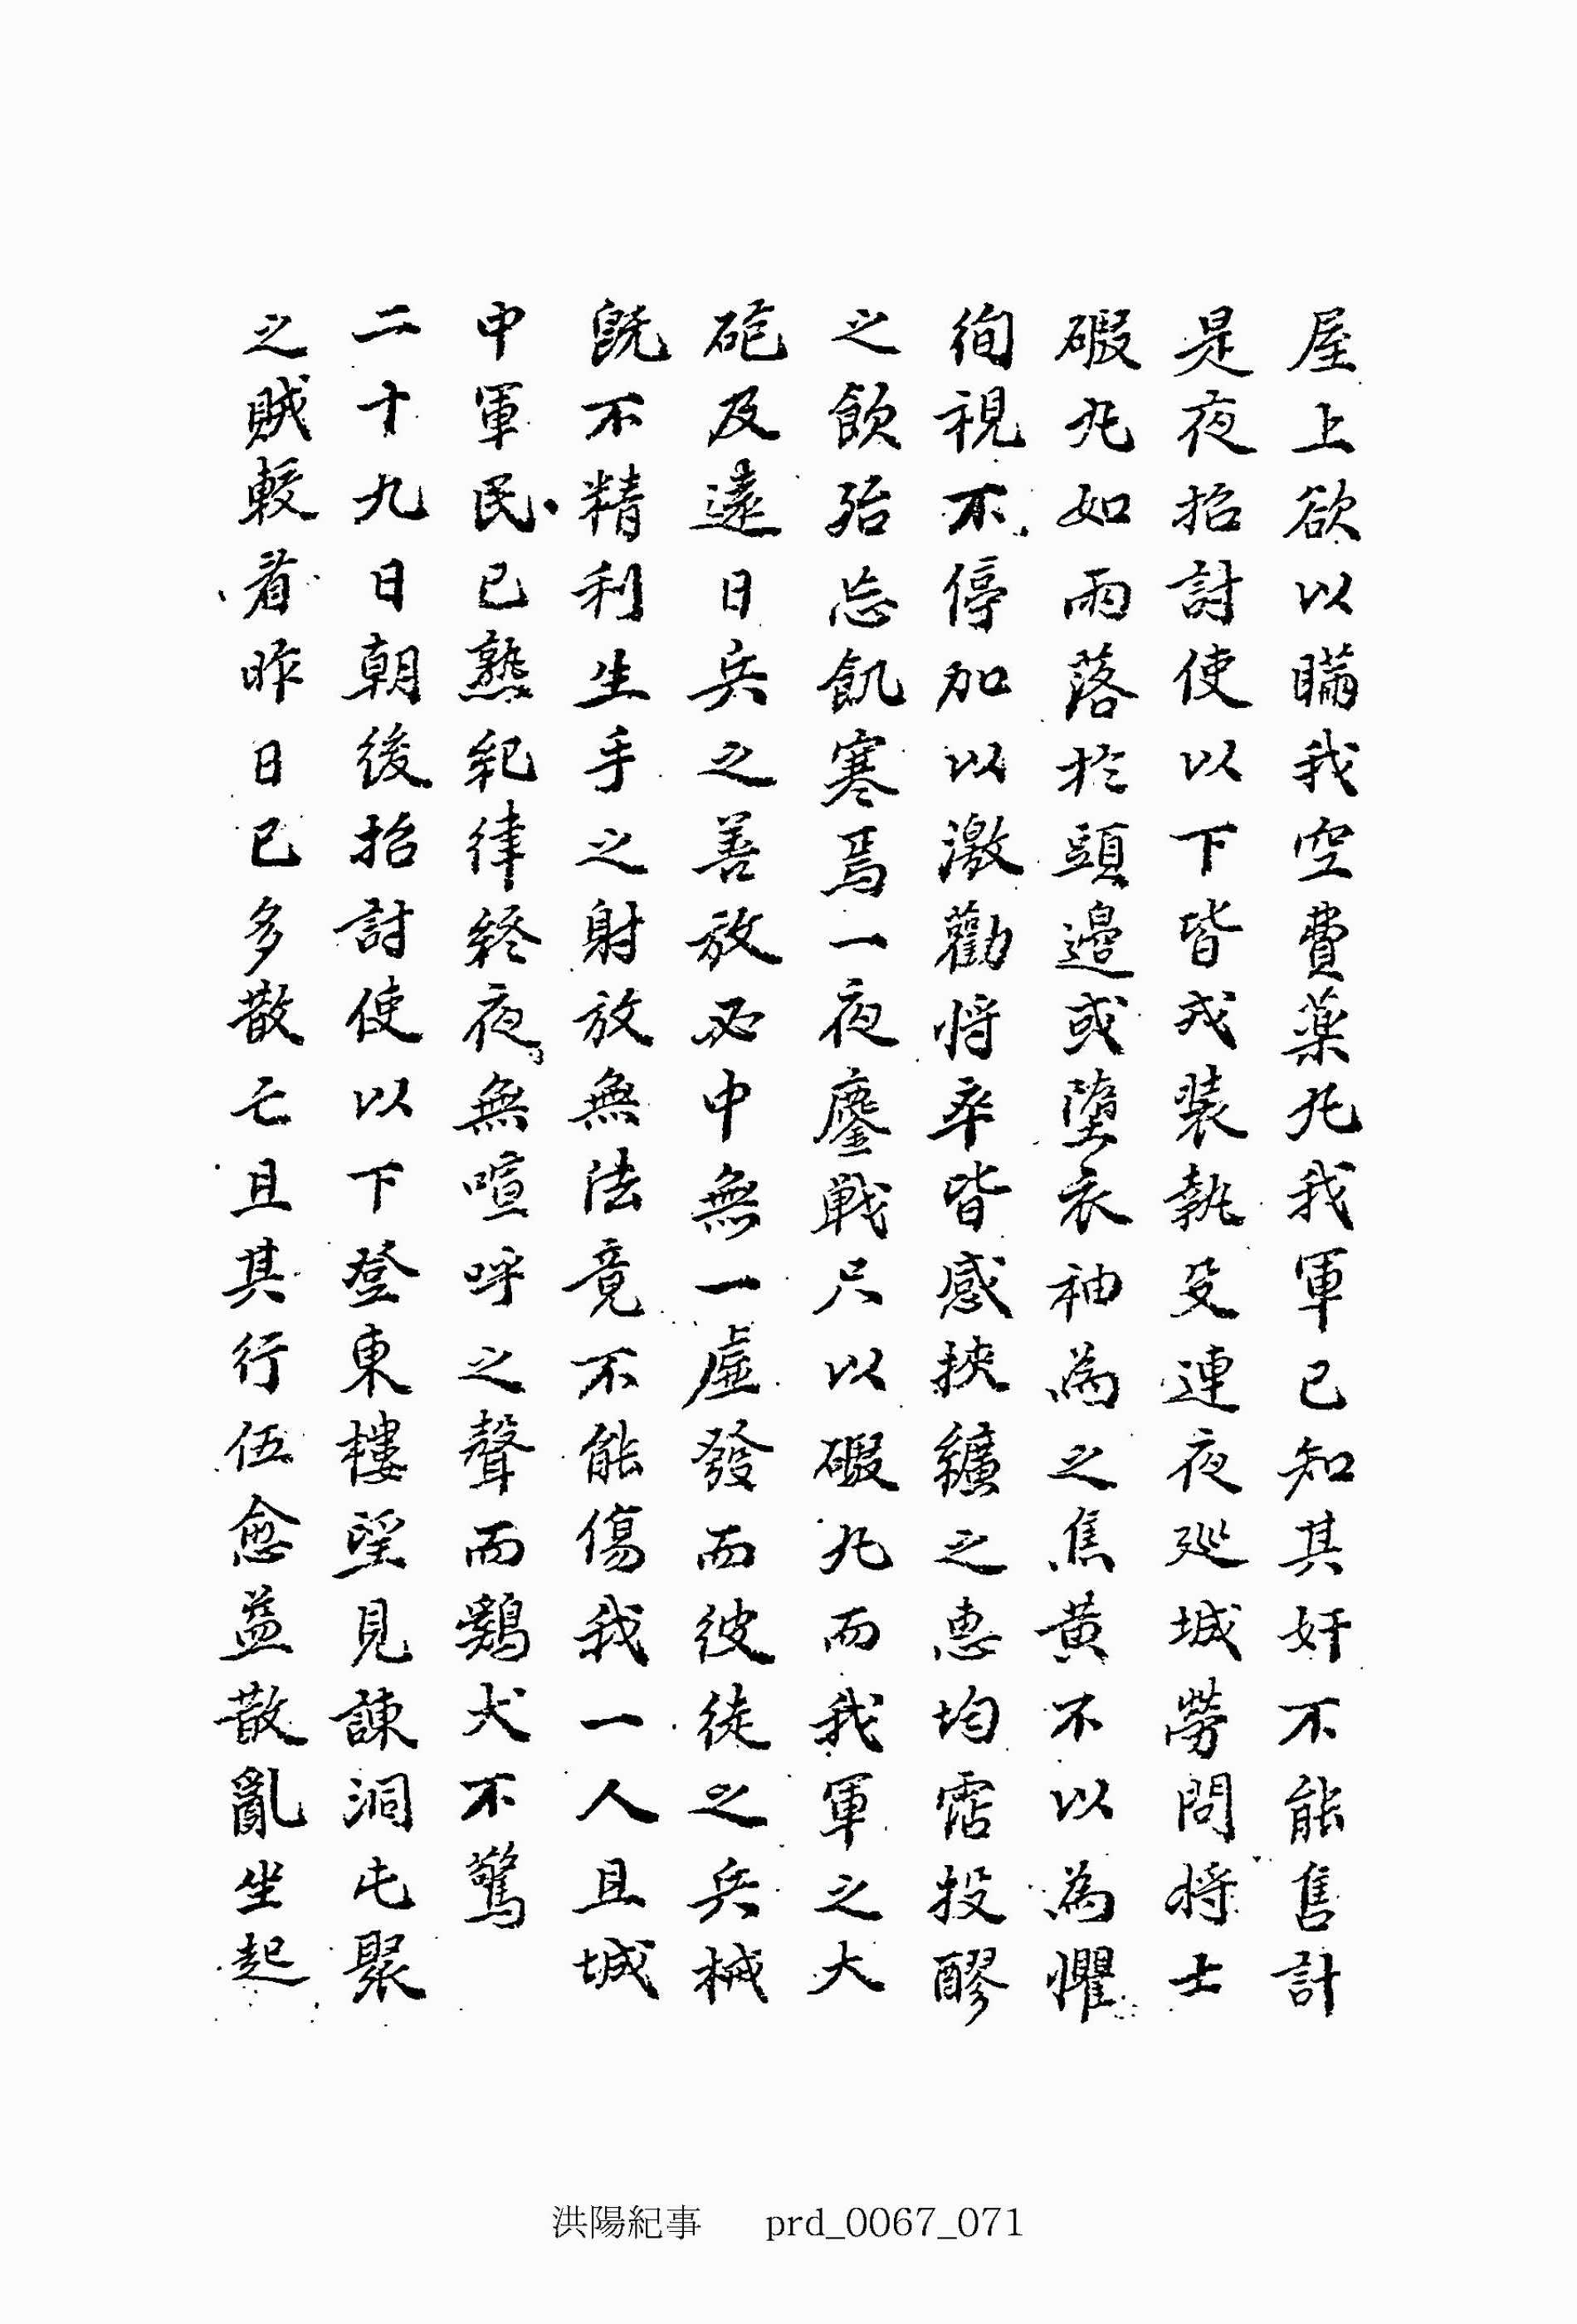 屋上欲以瞞我空費藥丸我軍已知其奸不能售計
是夜招討使以下皆戎裝執殳連夜巡城勞問將士
碬丸如雨落於頭邉或墮衣袖為之焦黄不以為懼
徇視不停加以激勸將卒皆感挾纊之惠均霑投醪
之飮殆忘飢寒焉一夜鏖戰只以碬丸而我軍之大
砲及遠日兵之善放必中無一虛發而彼徒之兵械
旣不精利生手之射放無法竟不能傷我一人且城
中軍民已熟紀律終夜無喧呼之聲而鷄犬不驚
二十九日朝後招討使以下登東樓望見諫洞屯聚
之賊較看昨日已多散亡且其行伍愈益散亂坐起
洪陽紀事 prd_0067_071